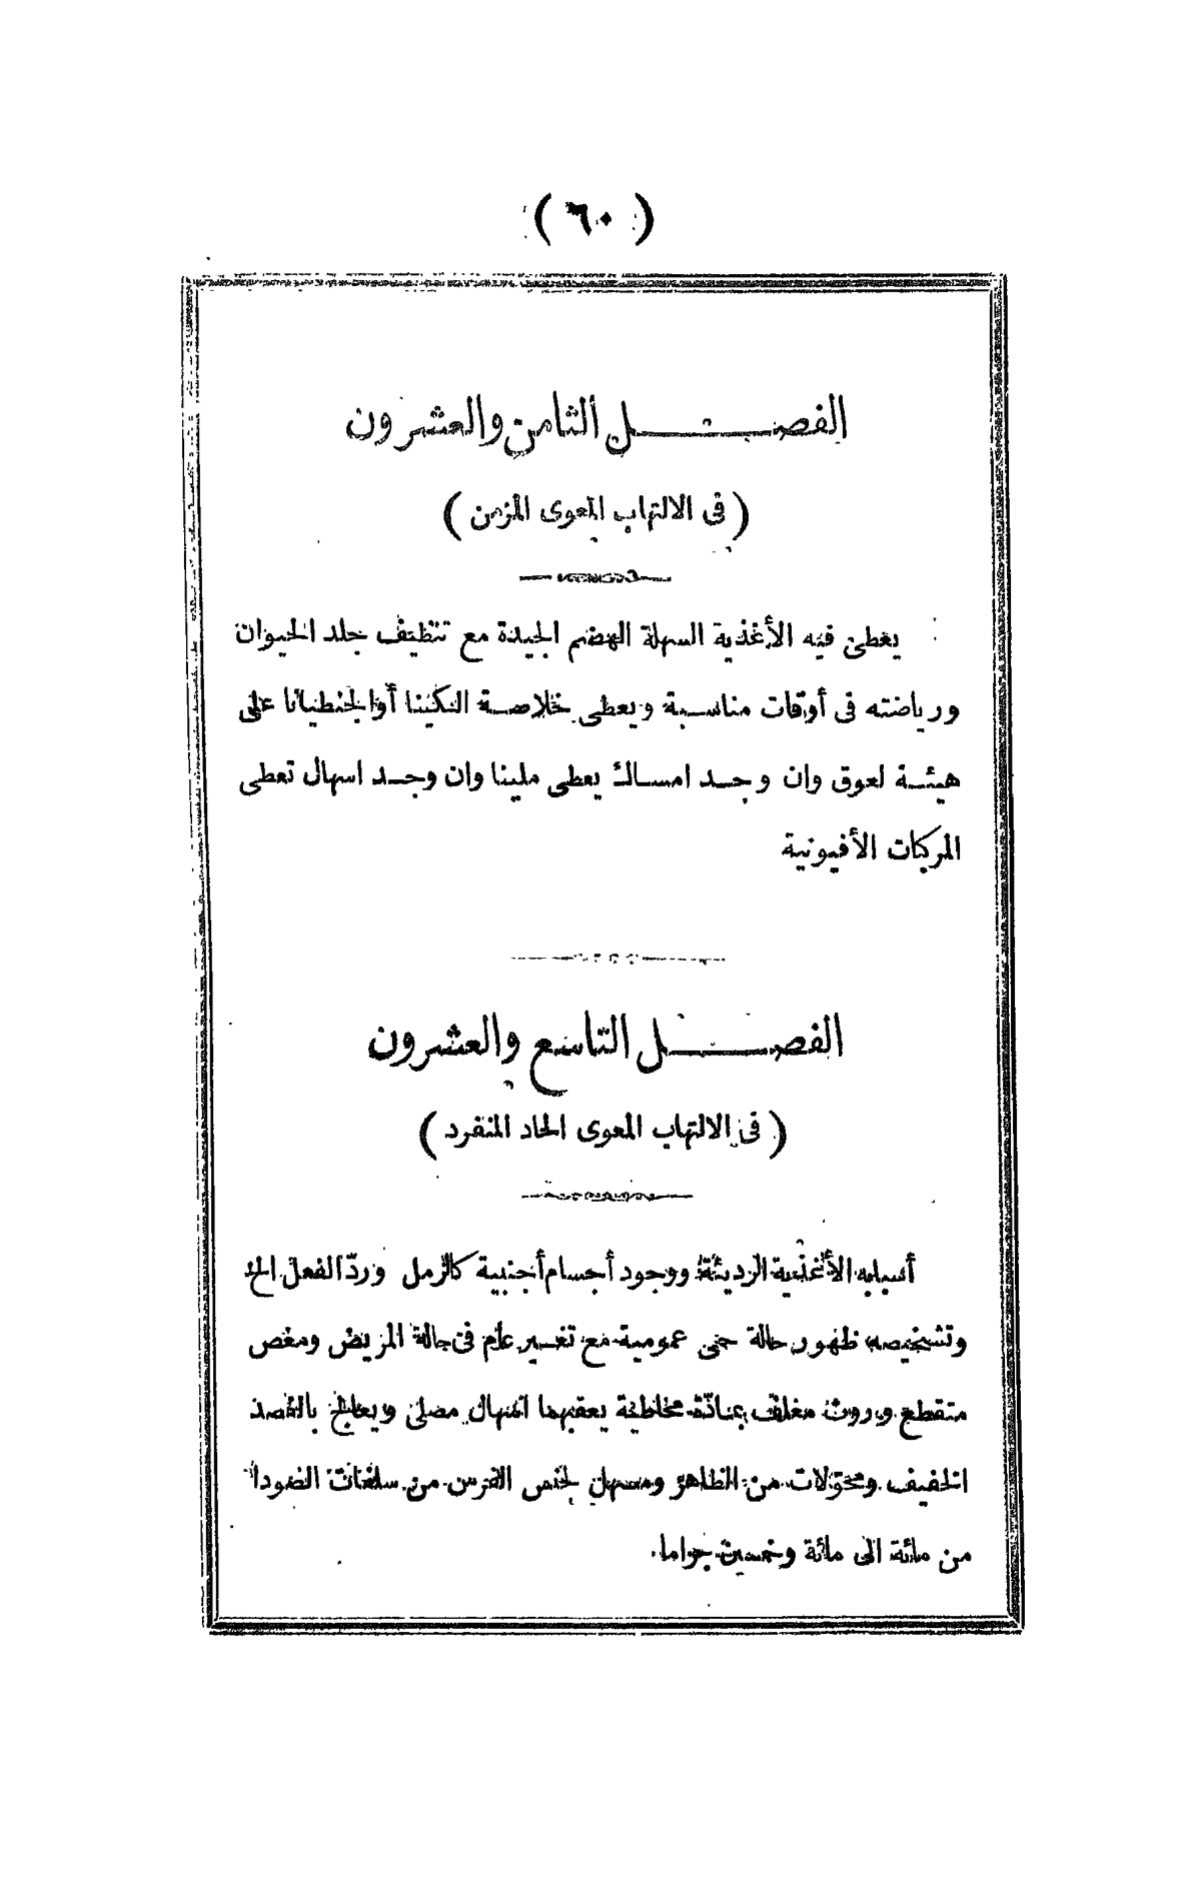 ( ٦٠ )
الفصل الثامن والعشرون
(فى الالتهاب المعوى المزمن)
يعطى فيه الأغذية السهلة الهضم الجيدة مع تنظيف جلد الحيوان
ورياضته فى أوقات مناسبة ويعطى خلاصة الكينا أو الجنطيانا على
هيئة لعوق وان وجد امساك يعطى ملينا وان وجد اسهال تعطى
المركبات الأفيونية
الفصل التاسع والعشرون
(فى الالتهاب المعوى الحاد المنفرد)
أسبابه الأغذية الرديئة ووجود أجسام أجنبية كالرمل وردّ الفعل الخ
وتشخيصه ظهور حالة حمى عمومية مع تغيير عام فى حالة المريض ومغص
متقطع وروث مغلف بمادّة مخاطية يعقبها اسهال مصلى ويعالج بالفصد
الخفيف ومحوّلات من الظاهر ومسهل يخص الفرس من سلفات الصودا
من مائة الى مائة وخمسين جراما.